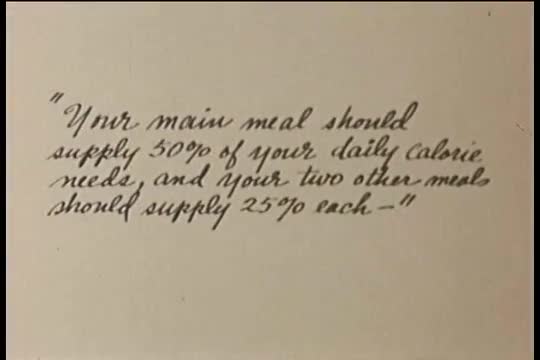 "Your main meal should
supply 50% of your daily calorie
needs, and your two other meals
should supply 25% each—"